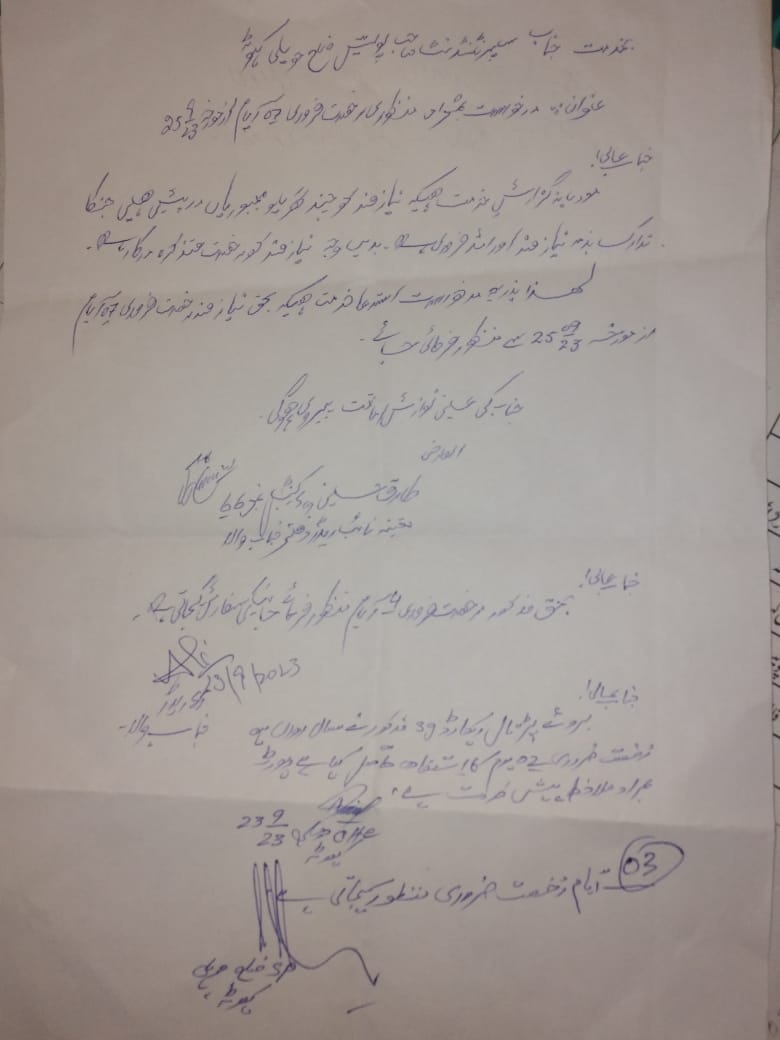 بخدمت جناب سپرنٹنڈنٹ صاحب پولیس ضلع حویلی کہوٹہ
عنوان:۔ درخواست بمراد منظوری رخصت ضروری 07 ایام از مورخہ 25 9/23
جناب عالی!
مودبانہ گزارش خدمت ہیکہ نیاز مند کو چند گھریلو مجبوریاں درپیش ہیں جنکا
تدارک بذمہ نیاز مند اور اشد ضروری ہے۔ بدیں وجہ نیاز مند کو رخصت متذکرہ درکار ہے۔
لہذا بذریعہ درخواست استدعا خدمت ہیکہ بحق نیاز مند رخصت ضروری 07 ایام
از مورخہ 25 09/23 سے منظور فرمائی جائے۔
جناب کی عین نوازش ہوگی۔
العارض
طارق حسین کنسٹیبل
متعینہ نائب ریڈر دفتر جناب والا
جناب عالی!
بحق مذکور رخصت ضروری ایام منظور فرمائے جانیکی سفارش کیجاتی ہے۔
23/9/2023
ریڈر
جناب والا
جناب عالی!
بروئے پڑتال ریکارڈ 39 مذکور نے سال رواں میں
رخصت ضروری 02 یوم کا استفادہ حاصل کیا ہے رپورٹ
بمراد ملاحظہ پیش خدمت ہے۔
OHC حویلی
23 9/23
کہوٹہ
03 ایام رخصت ضروری منظور کیجاتی ہے
ضلع حویلی
کہوٹہ